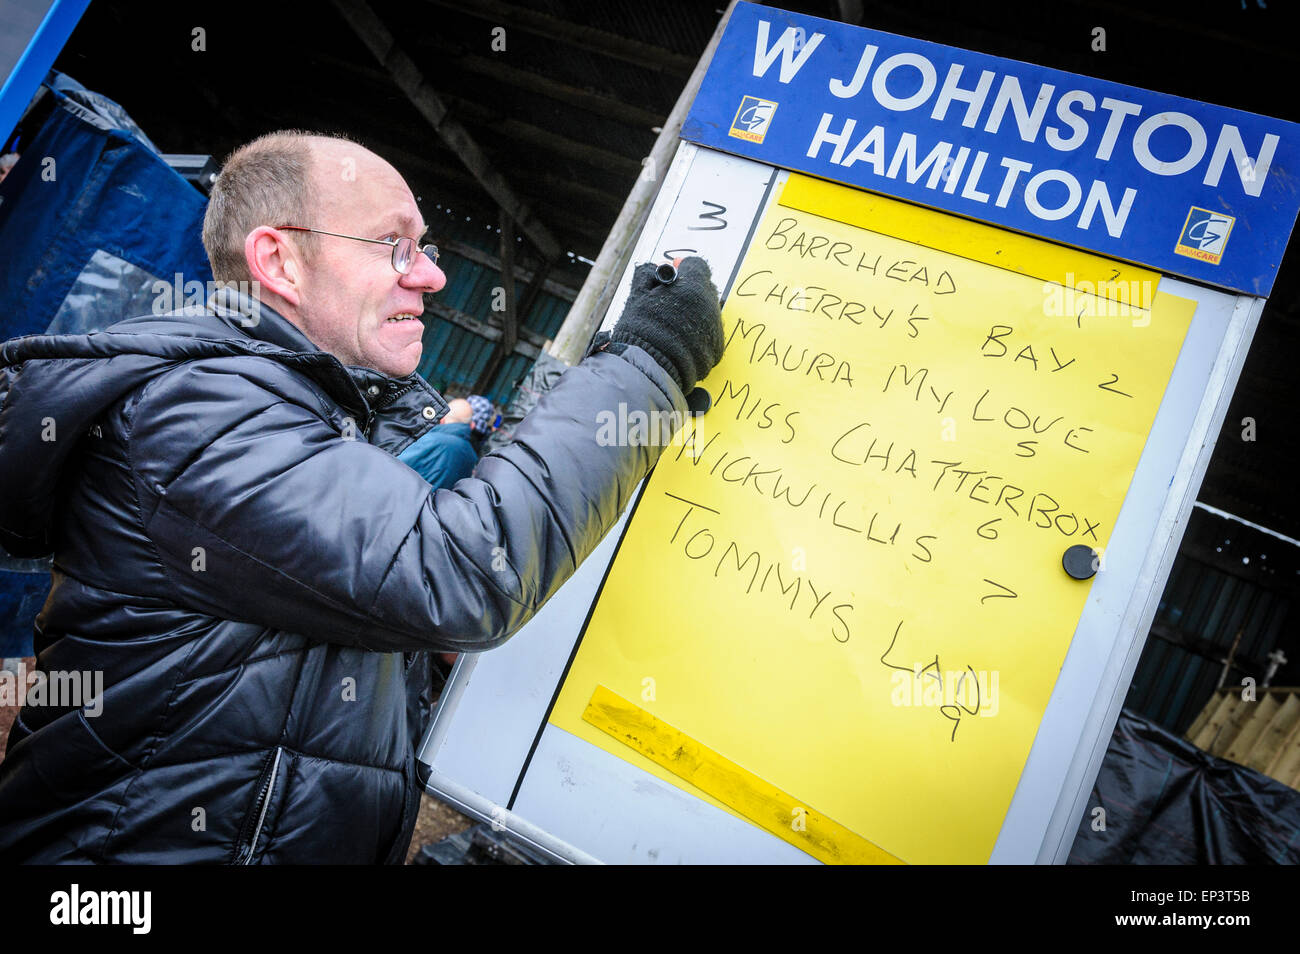 W JOHNSTON
HAMILTON
GAMCARE
GAMCARE
3
BARRHEAD 1
CHERRY'S BAY 2
MAURA MY LOVE 5
MISS CHATTERBOX 6
NICKWILLIS 7
TOMMYS LAD 9
alamy
alamy stock photo
EP3T5B
www.alamy.com